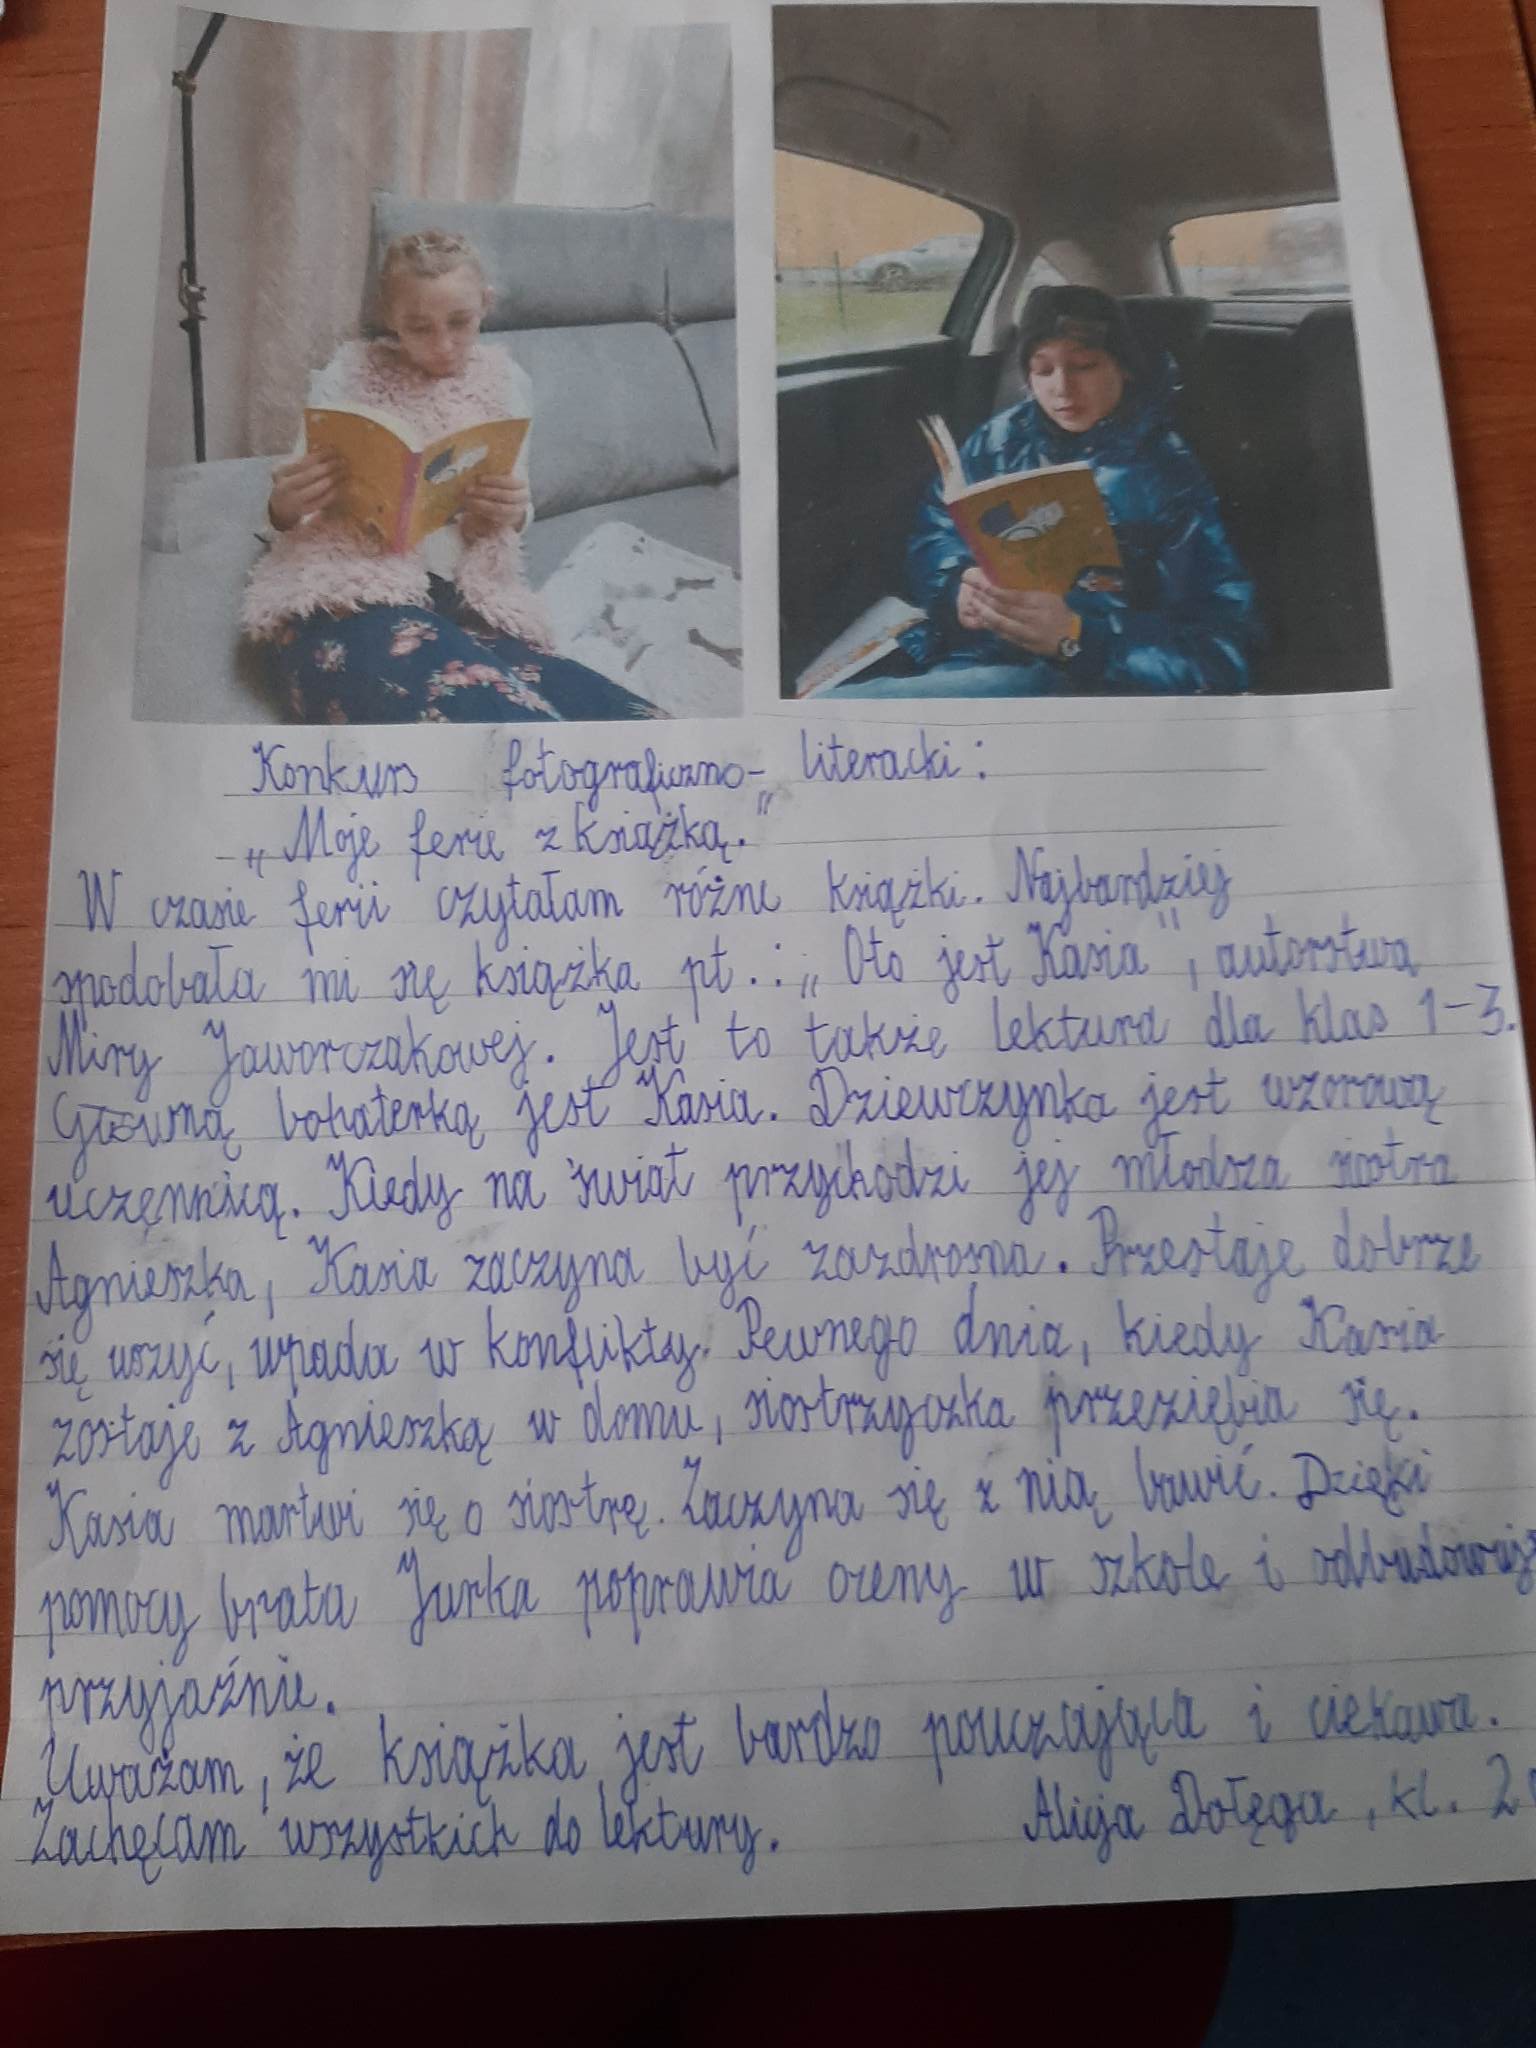 Konkurs fotograficzno- literacki:
„Moje ferie z książką."
W czasie ferii czytałam różne książki. Najbardziej
spodobała mi się książka pt.: „Oto jest Kasia", autorstwa
Miry Jaworczakowej. Jest to także lektura dla klas 1-3.
Główną bohaterką jest Kasia. Dziewczynka jest wzorową
uczennicą. Kiedy na świat przychodzi jej młodsza siostra
Agnieszka, Kasia zaczyna być zazdrosna. Przestaje dobrze
się uczyć, wpada w konflikty. Pewnego dnia, kiedy Kasia
zostaje z Agnieszką w domu, siostrzyczka przeziębia się.
Kasia martwi się o siostrę. Zaczyna się z nią bawić. Dzięki
pomocy brata Jurka poprawia oceny w szkole i odbudowuje
przyjaźnie.
Uważam, że książka jest bardzo pouczająca i ciekawa.
Zachęcam wszystkich do lektury. Alicja Dołęga, kl. 2